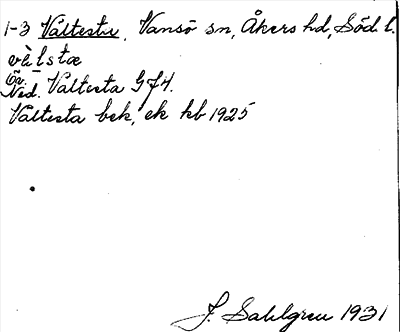 1-3 Valtesta. Vansö sn, Åkers hd, Söd. l.
vàlstæ
Öv. –
Ned. Valtesta GJ4.
Valtesta bek, ek kb 1925
J. Sahlgren 1931